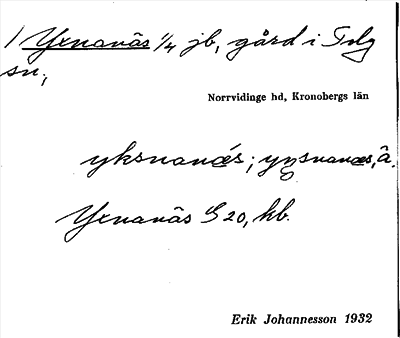 1 Yxnanäs 1/4 jb, gård i Tolg
sn,
Norrvidinge hd, Kronobergs län
yksnanǽs; yksnanæs, â.
Yxnanäs G 20, hb.
Erik Johannesson 1932